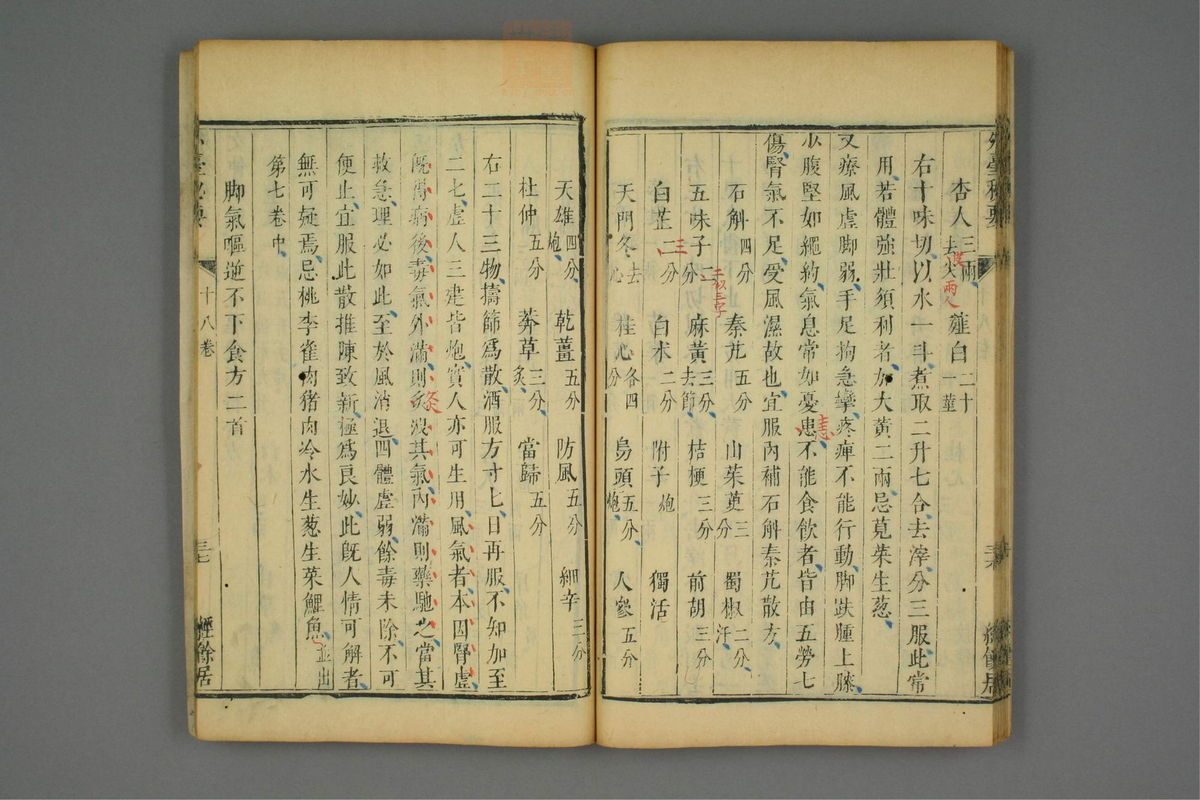 杏人三兩去尖皮兩人 薤白二十一莖
右十味切以水一斗煮取二升七合去滓分三服此常
用若體強壯須利者加大黃二兩忌莧菜生葱
又療風虛脚弱手足拘急攣疼痺不能行動脚趺腫上膝
少腹堅如繩約氣息常如憂患恚不能食飲者皆由五勞七
傷腎氣不足受風濕故也宜服內補石斛秦艽散方
石斛四分 秦艽五分 山茱萸三分 蜀椒二分汗
五味子二分 二似三字 麻黃三分去節 桔梗三分 前胡三分
白芷二分 三 白朮二分 附子炮 獨活
天門冬去心 桂心各四分 烏頭五分炮 人參五分
外臺秘要
三六
經餘居
天雄四分炮 乾薑五分 防風五分 細辛三分
杜仲五分 莽草三分炙 當歸五分
右二十三物擣篩爲散酒服方寸匕日再服不知加至
二匕虛人三建皆炮實人亦可生用風氣者本因腎虛
旣得病後毒氣外滿則灸洩其氣內滿則藥馳之當其
灸
救急理必如此至於風消退四體虛弱餘毒未除不可
便止宜服此散推陳致新極爲良妙此旣人情可解者
無可疑焉忌桃李雀肉猪肉冷水生葱生菜鯉魚並出
第七卷中
脚氣嘔逆不下食方二首
外臺秘要
十八卷
三七
經餘居